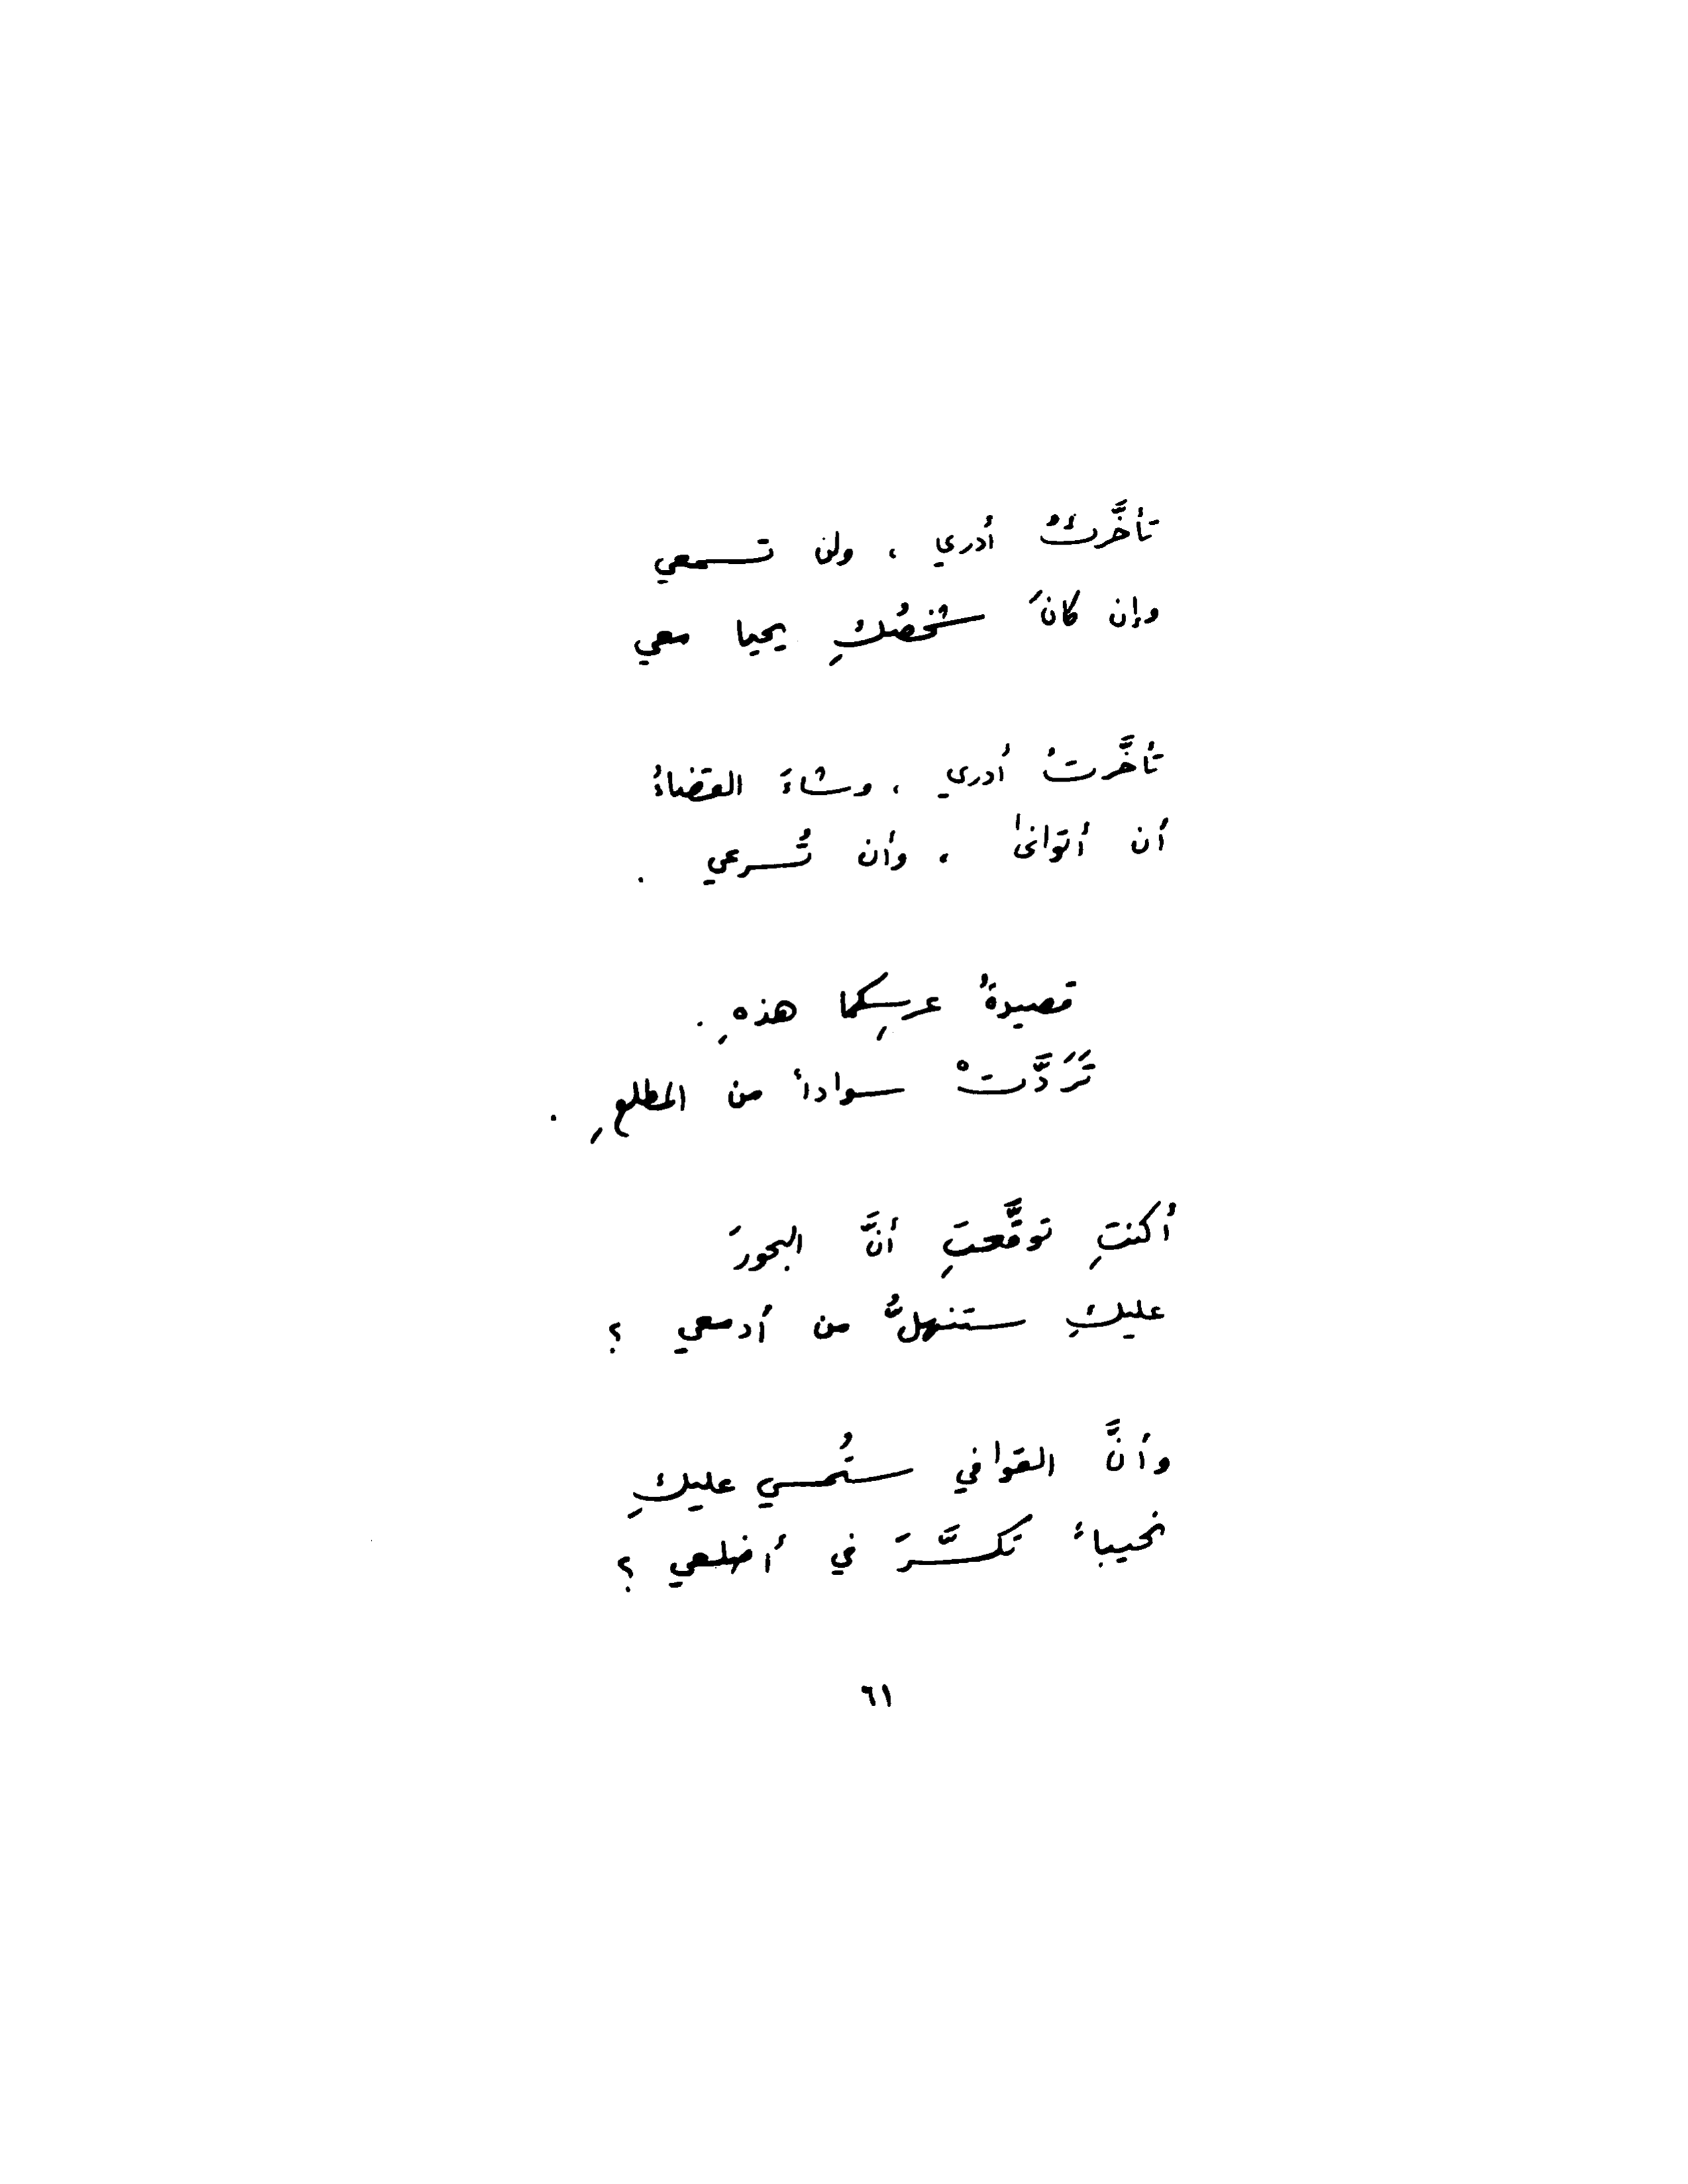 تأخَّرتُ أدري ، ولن تسمعي
وإن كانَ شخصُكِ يحيا معي
تأخَّرتُ أدري ، وشاءَ القضاءُ
أن أتوانىٰ ، وأن تُسرعي .
قصيدةُ عرسِكما هذهِ .
تَرَدَّتْ سواداً من المطلعِ .
أكنتِ توقَّعتِ أنَّ البحورَ
عليكِ ستنهلُّ من أدمعي ؟
وأنَّ القوافي ستُمسي عليكِ
نحيباً تكسَّرَ في أضلعي ؟
٦١